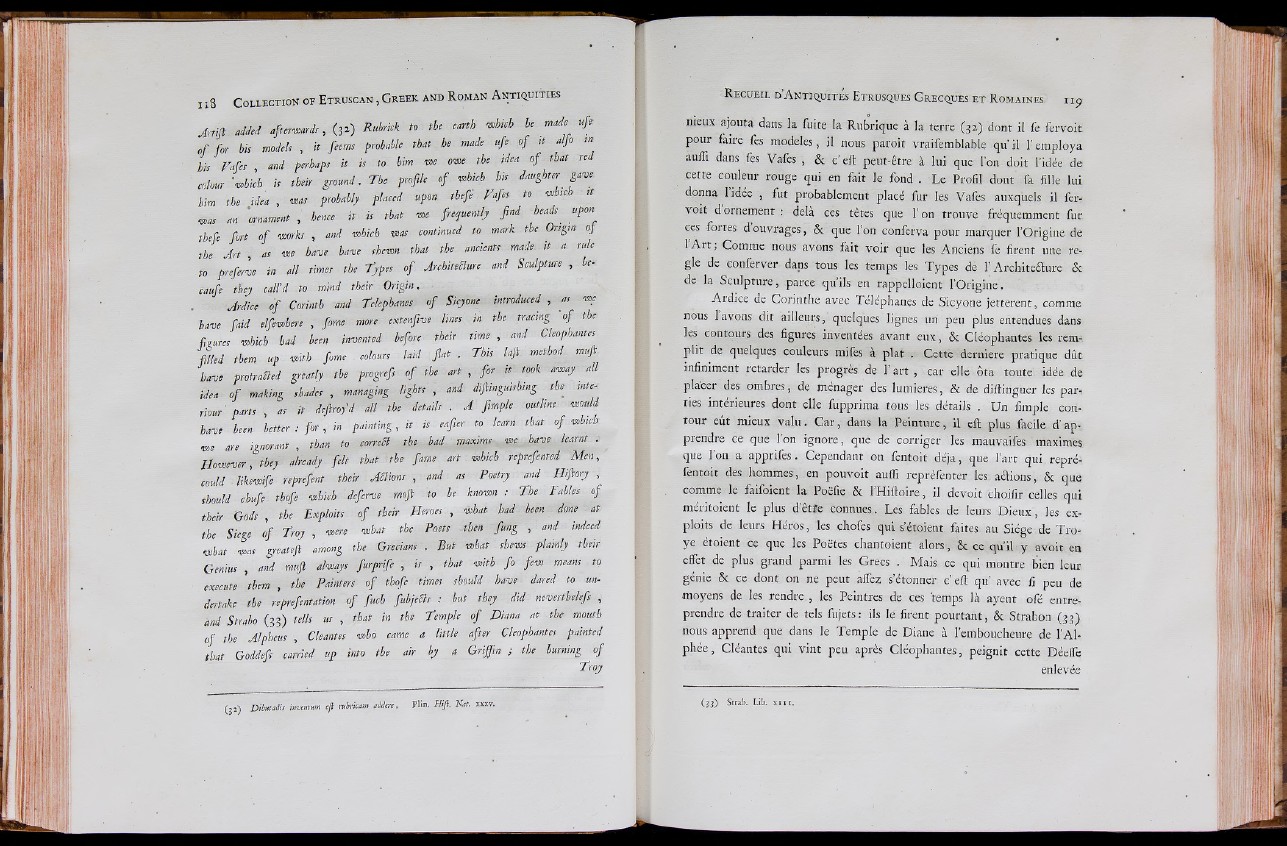 118 COLLECTION OF ETRUSCAN, GREEK AND ROMAN ANTIQUITIES
Artiſt added afterwards, (32) Rubrick to the earth which he made uſe
of for his models , it ſeems probable that he made uſe of it alſo in
his Vaſes , and perhaps it is to him we owe the idea of that red
colour which is their ground. The profile of which his daughter gave
him the idea , was probably placed upon theſe Vaſes to which it
was an ornament , hence it is that we frequently find heads upon
theſe ſort of works , and which was continued to mark the Origin of
the Art , as we have have shewn that the ancients made it a rule
to preſerve in all times the Types of Architecture and Sculpture , be-
cauſe they call'd to mind their Origin.
Ardice of Corinth and Telephanes of Sicyone introduced , as we
have ſaid elſewhere , ſome more extenſive lines in the tracing of the
figures which had been invented before their time , and Cleophantes
filled them up with ſome colours laid flat . This laſt method muſt
have protracted greatly the progreſs of the art , for it took away all
idea of making shades , managing lights , and diſtinguishing the inte-
riour parts , as it deſtroy'd all the details . A ſimple outline would
have been better : for , in painting , it is eaſier to learn that of which
we are ignorant , than to correct the bad maxims we have learnt .
However, they already felt that the ſame art which repreſented Men,
could likewiſe repreſent their Actions , and as Poetry and Hiſtory ,
should chuſe thoſe which deſerve moſt to be known : The Fables of
their Gods , the Exploits of their Heroes , what had been done at
the Siege of Troy , were what the Poets then ſung , and indeed
what was greateſt among the Grecians . But what shews plainly their
Genius , and muſt always ſurpriſe , is , that with ſo few means to
execute them , the Painters of thoſe times should have dared to un-
dertake the repreſentation of ſuch ſubjects : but they did nevertheleſs ,
and Strabo (33) tells us , that in the Temple of Diana at the mouth
of the Alpheus , Cleantes who came a little after Cleophantes painted
that Goddeſs carried up into the air by a Griffin ; the burning of
Troy
(32) Dibutadis inventum eſt rubricam addere. Plin. Hiſt. Nat. XXXV.
RECUEIL D'ANTIQUITÉS ETRUSQUES GRECQUES ET ROMAINES. 119
nieux ajouta dans la ſuite la Rubrique à la terre (32) dont il ſe ſervoit
pour faire ſes modeles, il nous paroit vraiſemblable qu'il l'employa
auſſi dans ſes Vaſes , & c'eſt peut-être à lui que l'on doit l'idée de
cette couleur rouge qui en fait le fond . Le Profil dont ſa fille lui
donna l'idée , fut probablement placé ſur les Vaſes auxquels il ſer-
voit d'ornement : delà ces têtes que l'on trouve fréquemment ſur
ces ſortes d'ouvrages, & que l'on conſerva pour marquer l'Origine de
l'Art; Comme nous avons fait voir que les Anciens ſe firent une re-
gle de conſerver dans tous les temps les Types de l'Architecture &
de la Sculpture, parce qu'ils en rappelloient l'Origine.
Ardice de Corinthe avec Téléphanes de Sicyone jetterent, comme
nous l'avons dit ailleurs, quelques lignes un peu plus entendues dans
les contours des figures inventées avant eux, & Cléophantes les rem-
plit de quelques couleurs miſes à plat . Cette derniere pratique dût
infiniment retarder les progrès de l'art , car elle ôta toute idée de
placer des ombres, de ménager des lumieres, & de diſtinguer les par-
ties intérieures dont elle ſupprima tous les détails . Un ſimple con-
tour eût mieux valu. Car, dans la Peinture, il eſt plus facile d'ap-
prendre ce que l'on ignore, que de corriger les mauvaiſes maximes
que l'on a appriſes. Cependant on ſentoit déja, que l'art qui repré-
ſentoit des hommes, en pouvoit auſſi repréſenter les actions, & que
comme le faiſoient la Poëſie & l'Hiſtoire, il devoit choiſir celles qui
méritoient le plus d'être connues. Les fables de leurs Dieux, les ex-
ploits de leurs Héros, les choſes qui s'étoient faites au Siége de Tro-
ye étoient ce que les Poëtes chantoient alors, & ce qu'il y avoit en
effet de plus grand parmi les Grecs . Mais ce qui montre bien leur
génie & ce dont on ne peut aſſez s'étonner c'eſt qu'avec ſi peu de
moyens de les rendre, les Peintres de ces temps là ayent oſé entre-
prendre de traiter de tels ſujets: ils le firent pourtant, & Strabon (33)
nous apprend que dans le Temple de Diane à l'emboucheure de l'Al-
phée, Cléantes qui vint peu après Cléophantes, peignit cette Déeſſe
enlevée
(33) Strab. Lib. XIII.